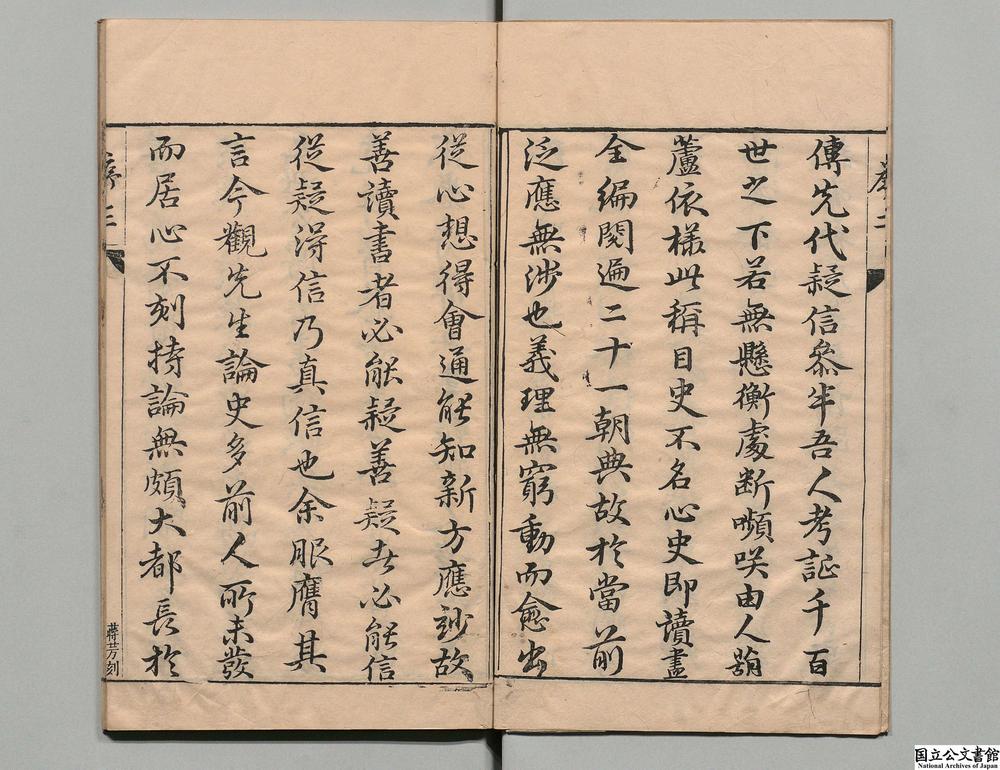 序二
傳先代疑信叅半吾人考証千百
世之下若無懸衡處断嚬咲由人葫
蘆依様此稱目史不名心史即讀盡
全編閱遍二十一朝典故於當前
泛應無涉也義理無窮動而愈出
從心想得會通能知新方應妙故
善讀書者必能疑善疑者必能信
從疑得信乃真信也余服膺其
言今觀先生論史多前人所未發
而居心不刻持論無頗大都長於
序三
蔣芳刻
国立公文書館
National Archives of Japan